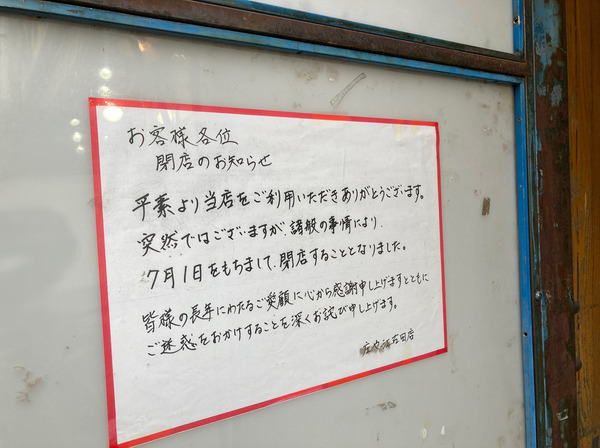 お客様各位
閉店のお知らせ
平素より当店をご利用いただきありがとうございます。
突然ではございますが、諸般の事情により、
7月1日をもちまして、閉店することとなりました。
皆様の長年にわたるご愛顧に心から感謝申し上げますとともに
ご迷惑をおかけすることを深くお詫び申し上げます。
庄や 五田店